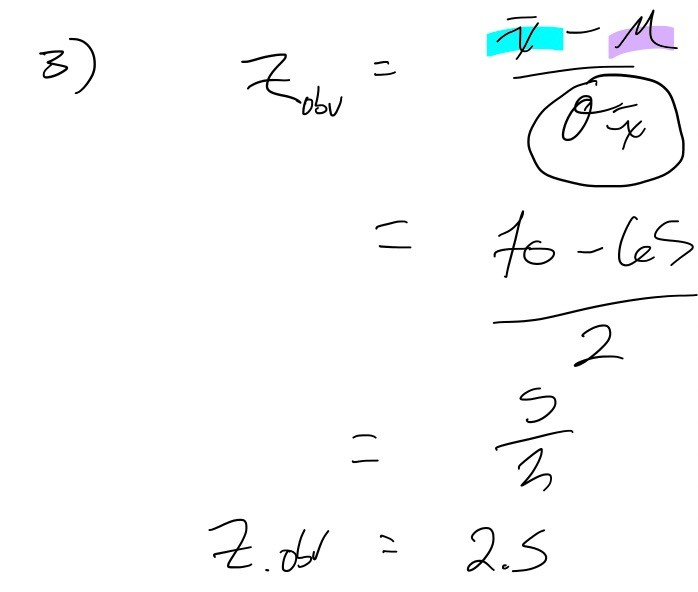 3) Z obv = x̄ - μ
σ x̄
= 70 - 65
2
= 5
2
Z.obv = 2.5